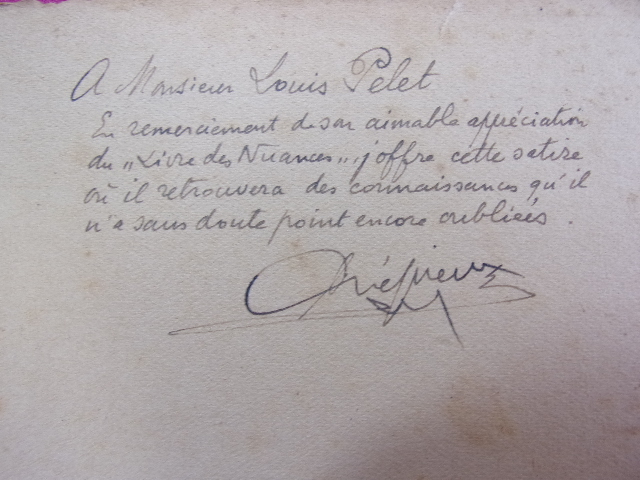 A Monsieur Louis Pelet
En remerciement de son aimable appréciation
du „Livre des Nuances", j'offre cette satire
où il retrouvera des connaissances qu'il
n'a sans doute point encore oubliées.